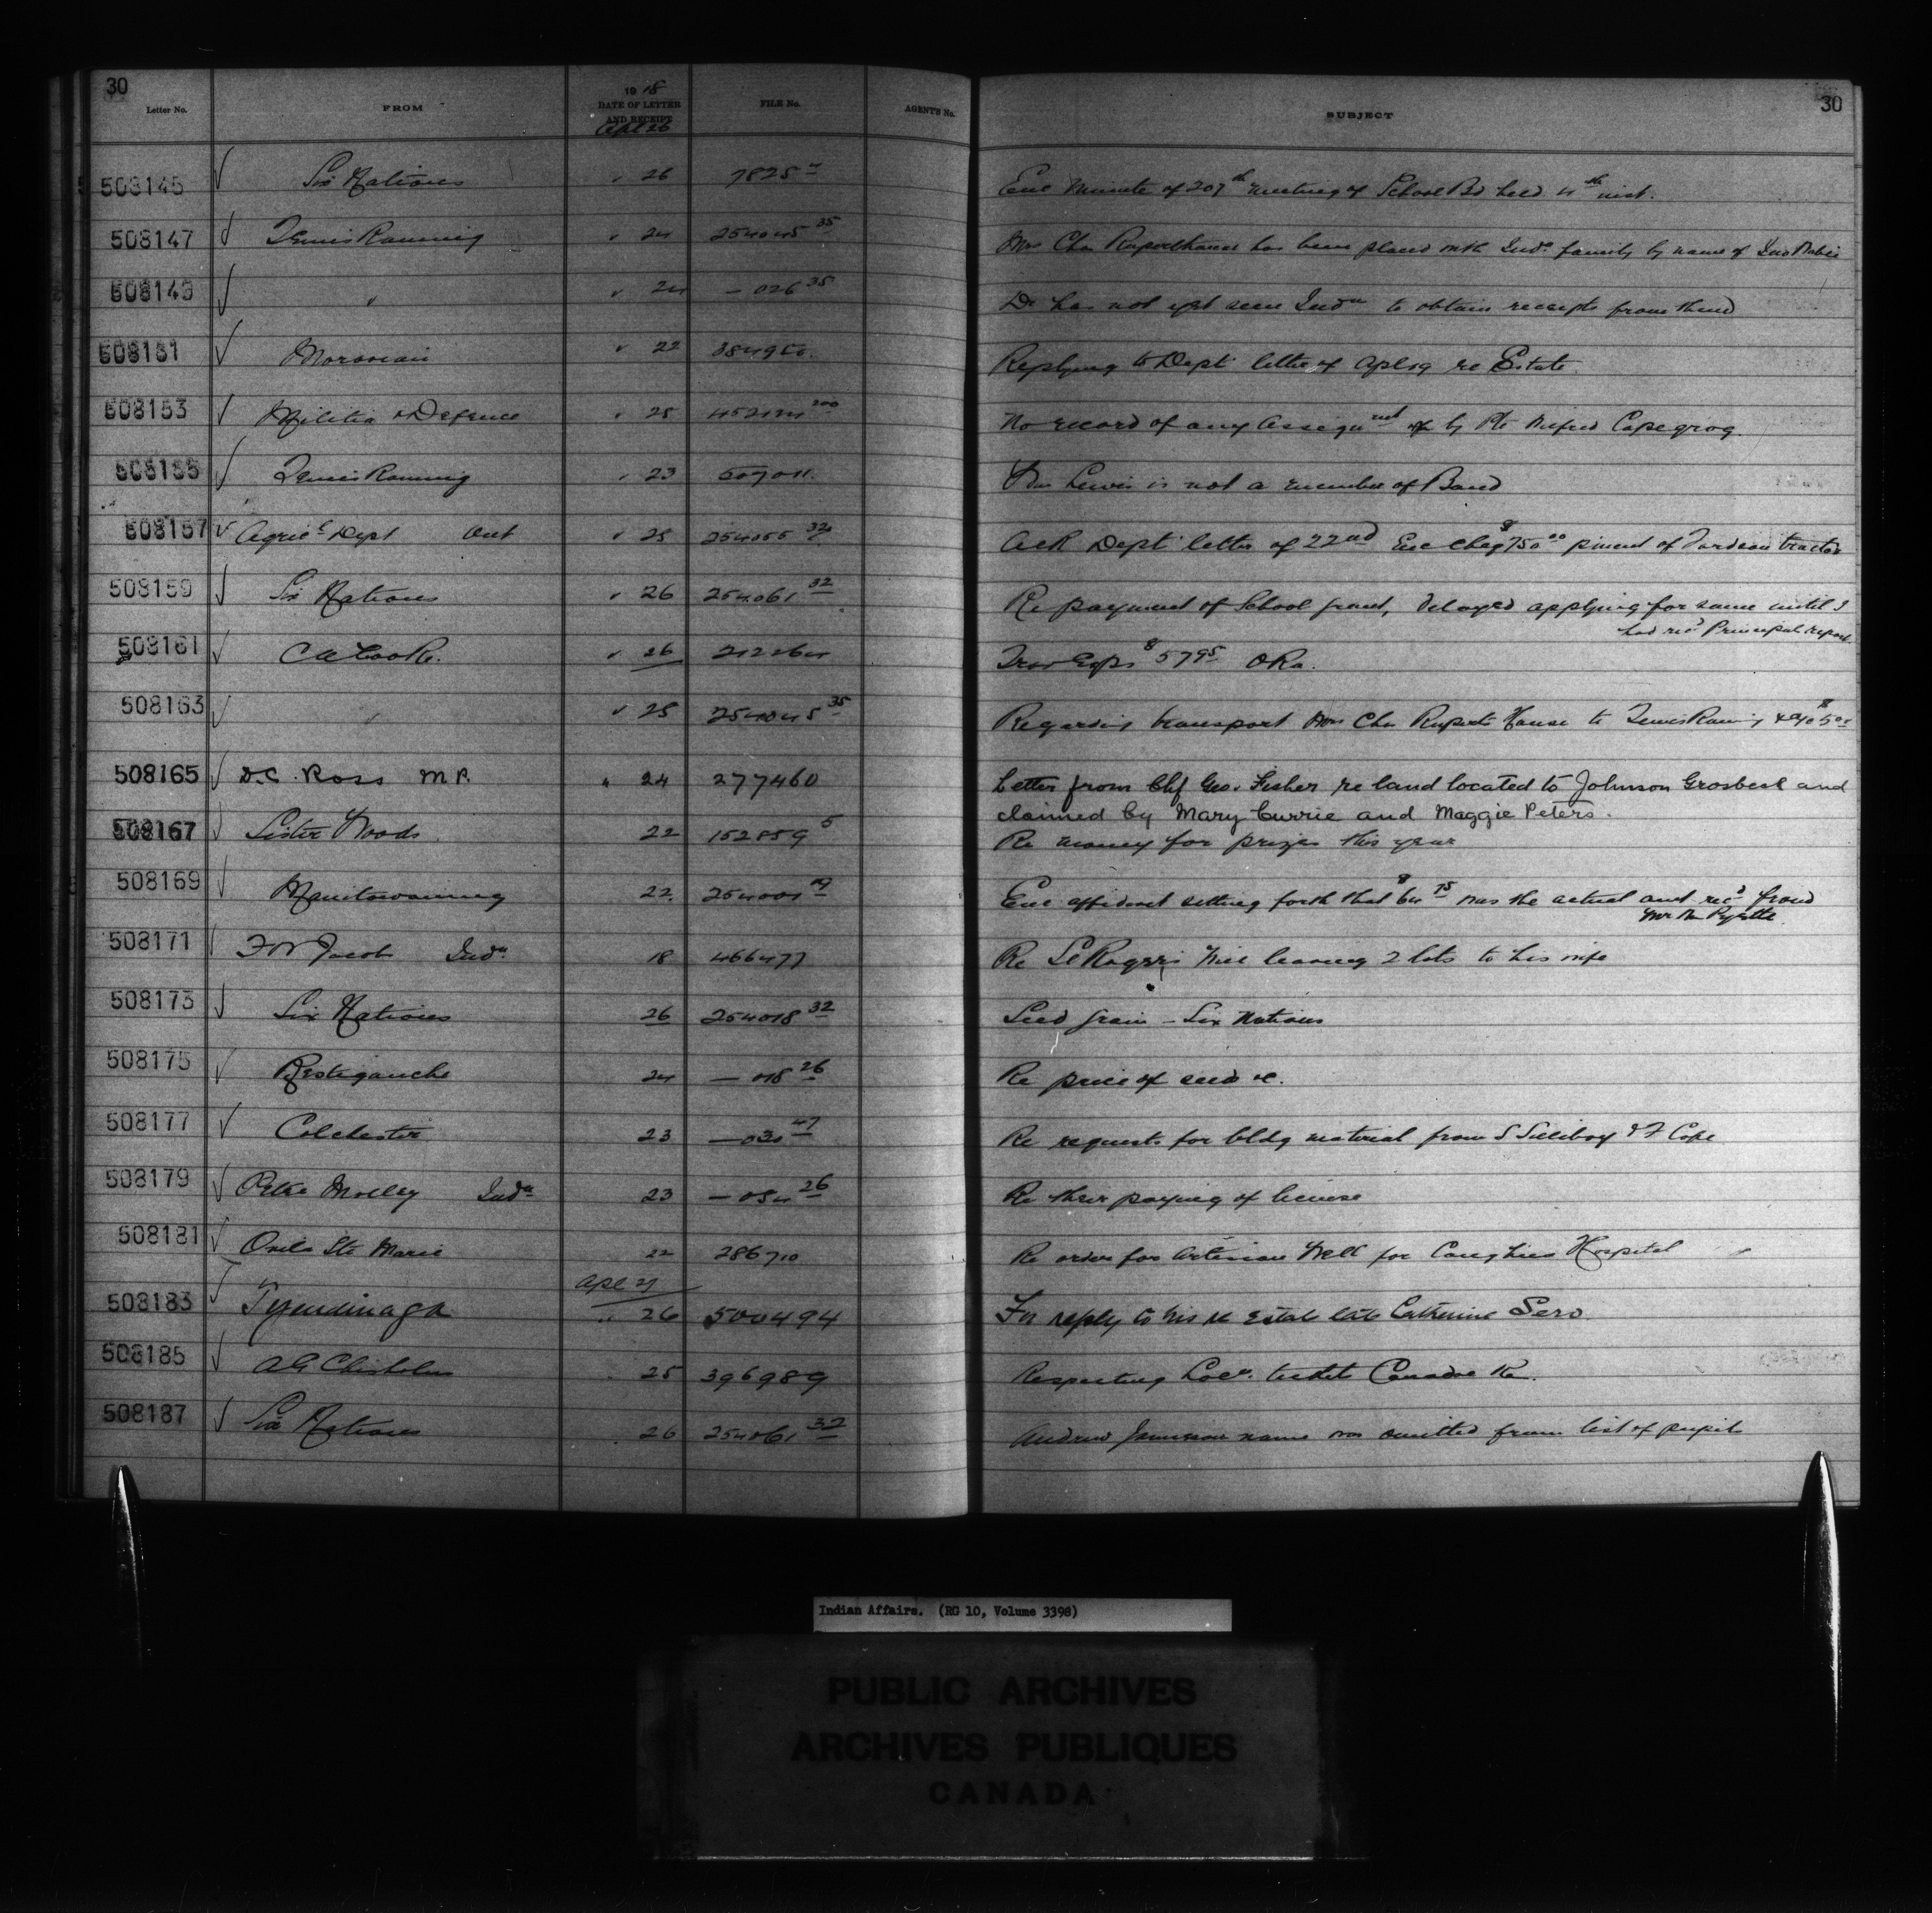 30
Letter No. FROM 19 18 DATE OF LETTER AND RECEIPT FILE No. AGENT'S No. SUBJECT 30
Apl 26
508145 Six Nations " 26 7825 Enc Minute of 207th meeting of School Bd held inst.
508147 " 24 254045 35 Mrs Chas has been placed with Indn family by name of
508149 " " 24 — 026 35 Dr has not yet seen Indn to obtain receipts from them
508151 Moravian " 22 Replying to Dept letter of Apl 19 re Estate
508153 Militia & Defence " 25 No record of any assignmt by Pte
508155 " 23 507011 Wm Lewis is not a member of Band
508157 Agricl Dept Ont " 25 254055 32 Ack Dept letter of 22nd Enc cheq $750 00 of tractor
508159 Six Nations " 26 254061 32 Re payment of School grant, delayed applying for same until I
had recd Principals report
508161 C A Cooke. " 26 Trav Exps $57 95 Oka.
508163 " " 25 254045 35 Regarding transport Mrs Chas Ruperts House to
508165 D.C. Ross M.P. " 24 277460 Letter from Chf Geo. Fisher re land located to Johnson Grosbeck and
claimed by Mary Currie and Maggie Peters.
508167 Sister Woods 22 152859 5 Re money for prizes this year
508169 Manitowaning 22 254001 19 Enc affidavit setting forth that $64 75 was the actual amt recd from
508171 F W Jacobs Indn 18 466477 Re Will leaving 2 lots to his wife
508173 Six Nations 26 254018 32 Seed grain – Six Nations
508175 Restigouche 24 — 018 26 Re price of seed &c.
508177 Colchester 23 — 030 47 Re requests for bldg material from S Silliboy & F Cope
508179 Peter Molley Indn 23 — 054 26 Re their paying of license
508181 Ovila Ste Marie 22 286710 Re order for Artesian Well for Caughna Hospital
Apl 27
508183 Tyendinaga " 26 500494 For reply to his re Estate late Catherine Sero.
508185 A G Chisholm 25 396989 Respecting Locn. tickets
508187 Six Nations 26 254061 32 Andrew Jamieson name was omitted from list of pupils
Indian Affairs. (RG 10, Volume 3398)
PUBLIC ARCHIVES
ARCHIVES PUBLIQUES
CANADA